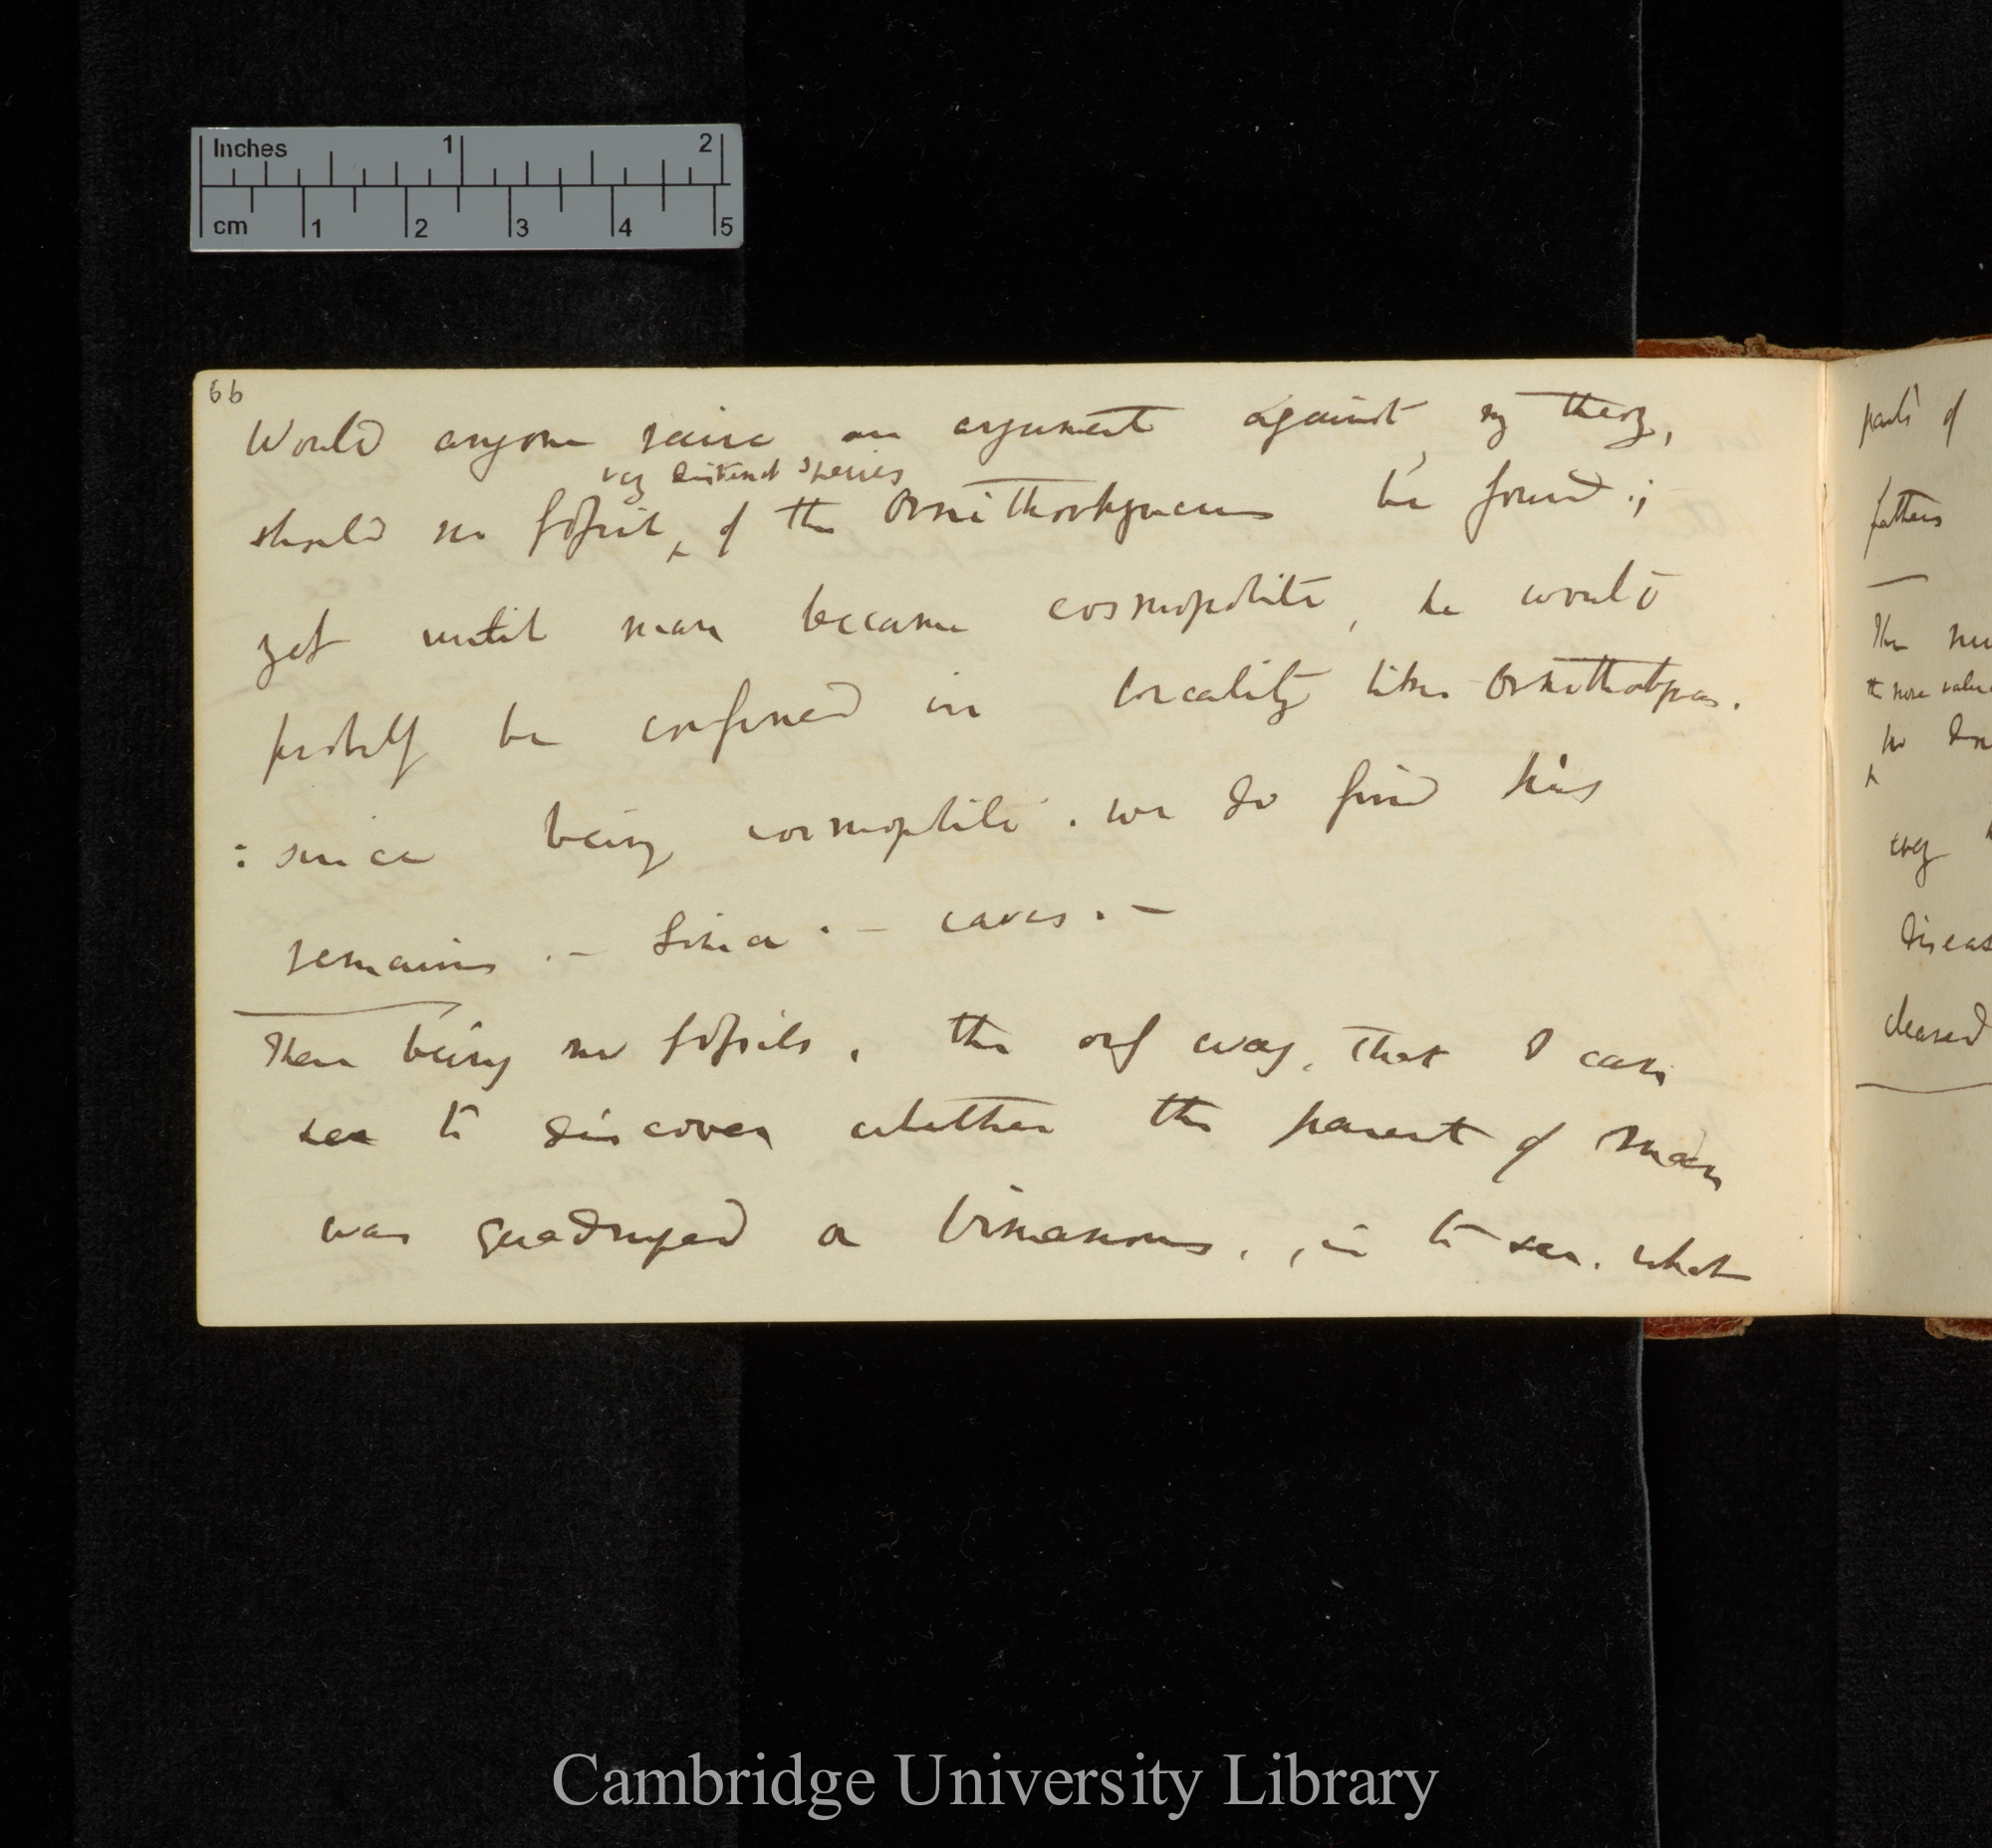 Inches 1 2
cm 1 2 3 4 5
66
Would anyone raise an argument against my theory,
very distinct species
should no fossil of the Ornithorhyncus be found.;
yet until man became cosmopolite, he would
probably be confined in locality like Ornithorhyncus.
: since being cosmopolite. we do find his
remains. — caves. —
There being no fossils, the only way, that I can
see to discover whether the parent of man
was quadruped or bimanous, is to see. what
parts of
fathers
the more value
no
every
Diseas
cleared
Cambridge University Library